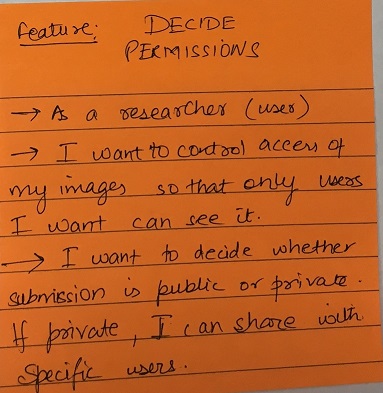 feature: DECIDE
PERMISSIONS
→ As a researcher (user)
→ I want to control access of
my images so that only users
I want can see it.
→ I want to decide whether
submission is public or private.
If private, I can share with
specific users.